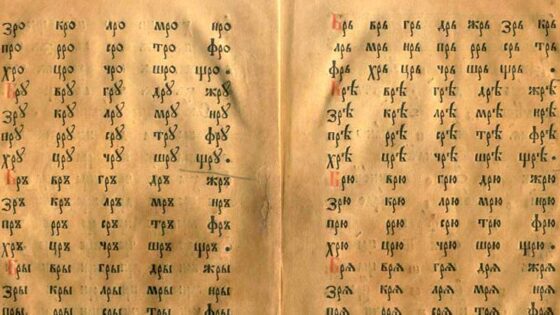 Зро кро лро мро нро
про рро сро тро фро
хро цро чро шро щро.
Брꙋ врꙋ грꙋ дрꙋ жрꙋ
Зрꙋ крꙋ лрꙋ мрꙋ нрꙋ
прꙋ ррꙋ срꙋ трꙋ фрꙋ
хрꙋ црꙋ чрꙋ шрꙋ щрꙋ.
Бръ връ гръ дръ жръ
Зръ кръ лръ мръ нръ
пръ рръ сръ тръ фръ
хръ цръ чръ шръ щръ.
Бры вры гры дры жры
Зры кры лры мры нры
пры рры сры тры фры
Брь врь грь дрь жрь Зрь крь
лрь мрь нрь прь ррь срь трь
фрь хрь црь чрь шрь щрь.
Брѣ врѣ грѣ дрѣ жрѣ
Зрѣ крѣ лрѣ мрѣ нрѣ
прѣ ррѣ срѣ трѣ фрѣ
хрѣ црѣ чрѣ шрѣ щрѣ.
Брю врю грю дрю жрю
Зрю крю лрю мрю нрю
прю ррю срю трю фрю
хрю црю чрю шрю щрю.
Брѧ врѧ грѧ дрѧ жрѧ
Зрѧ крѧ лрѧ мрѧ нрѧ
прѧ ррѧ срѧ трѧ фрѧ